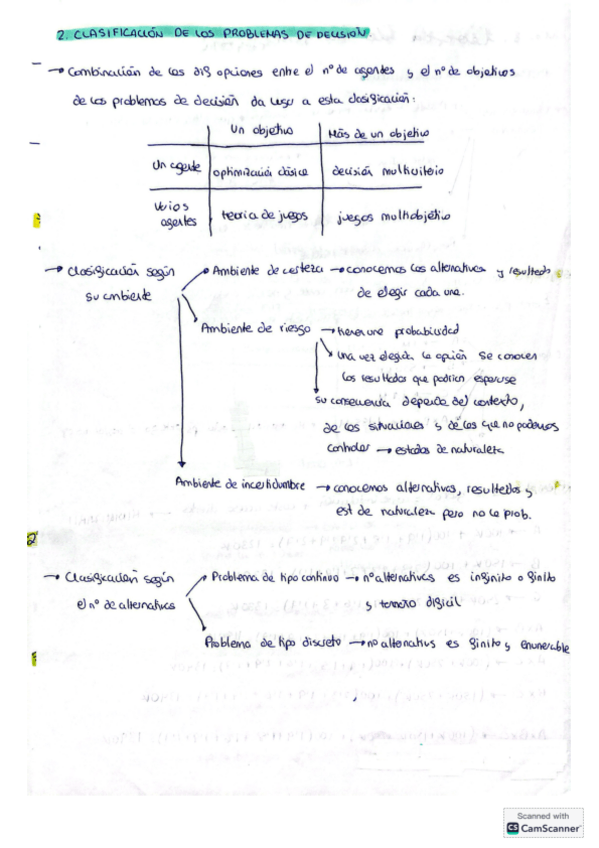 2. CLASIFICACIÓN DE LOS PROBLEMAS DE DECISIÓN.
→ Combinación de las dif opciones entre el nº de agentes y el nº de objetivos
de los problemas de decisión da lugar a esta clasificación:
Un objetivo Más de un objetivo
Un agente optimización clásica decisión multicriterio
Varios
agentes teoría de juegos juegos multiobjetivo
→ Clasificación según
su ambiente
Ambiente de certeza → conocemos las alternativas y resultado
de elegir cada una.
Ambiente de riesgo → tienen una probabilidad
Una vez elegida la opción se conocen
los resultados que podrían esperarse
su consecuencia depende del contexto,
de las situaciones y de las que no podemos
controlar → estados de naturaleza
Ambiente de incertidumbre → conocemos alternativas, resultados y
est de naturaleza pero no la prob.
2
→ Clasificación según
el nº de alternativas
Problema de tipo continuo → nº alternativas es infinito o finito
y tamaño difícil
Problema de tipo discreto → nº alternativas es finito y enumerable
Scanned with
CS CamScanner